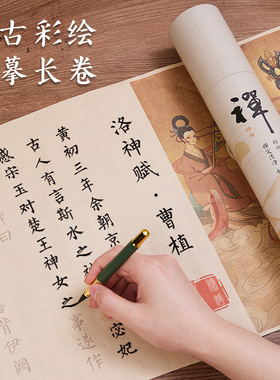 古彩绘
摹长卷
洛神赋·曹植
黄初三年余朝京
古人有言斯水之神
宓妃
感宋玉对楚王神女之
事遂作
曰
背伊阙
禪